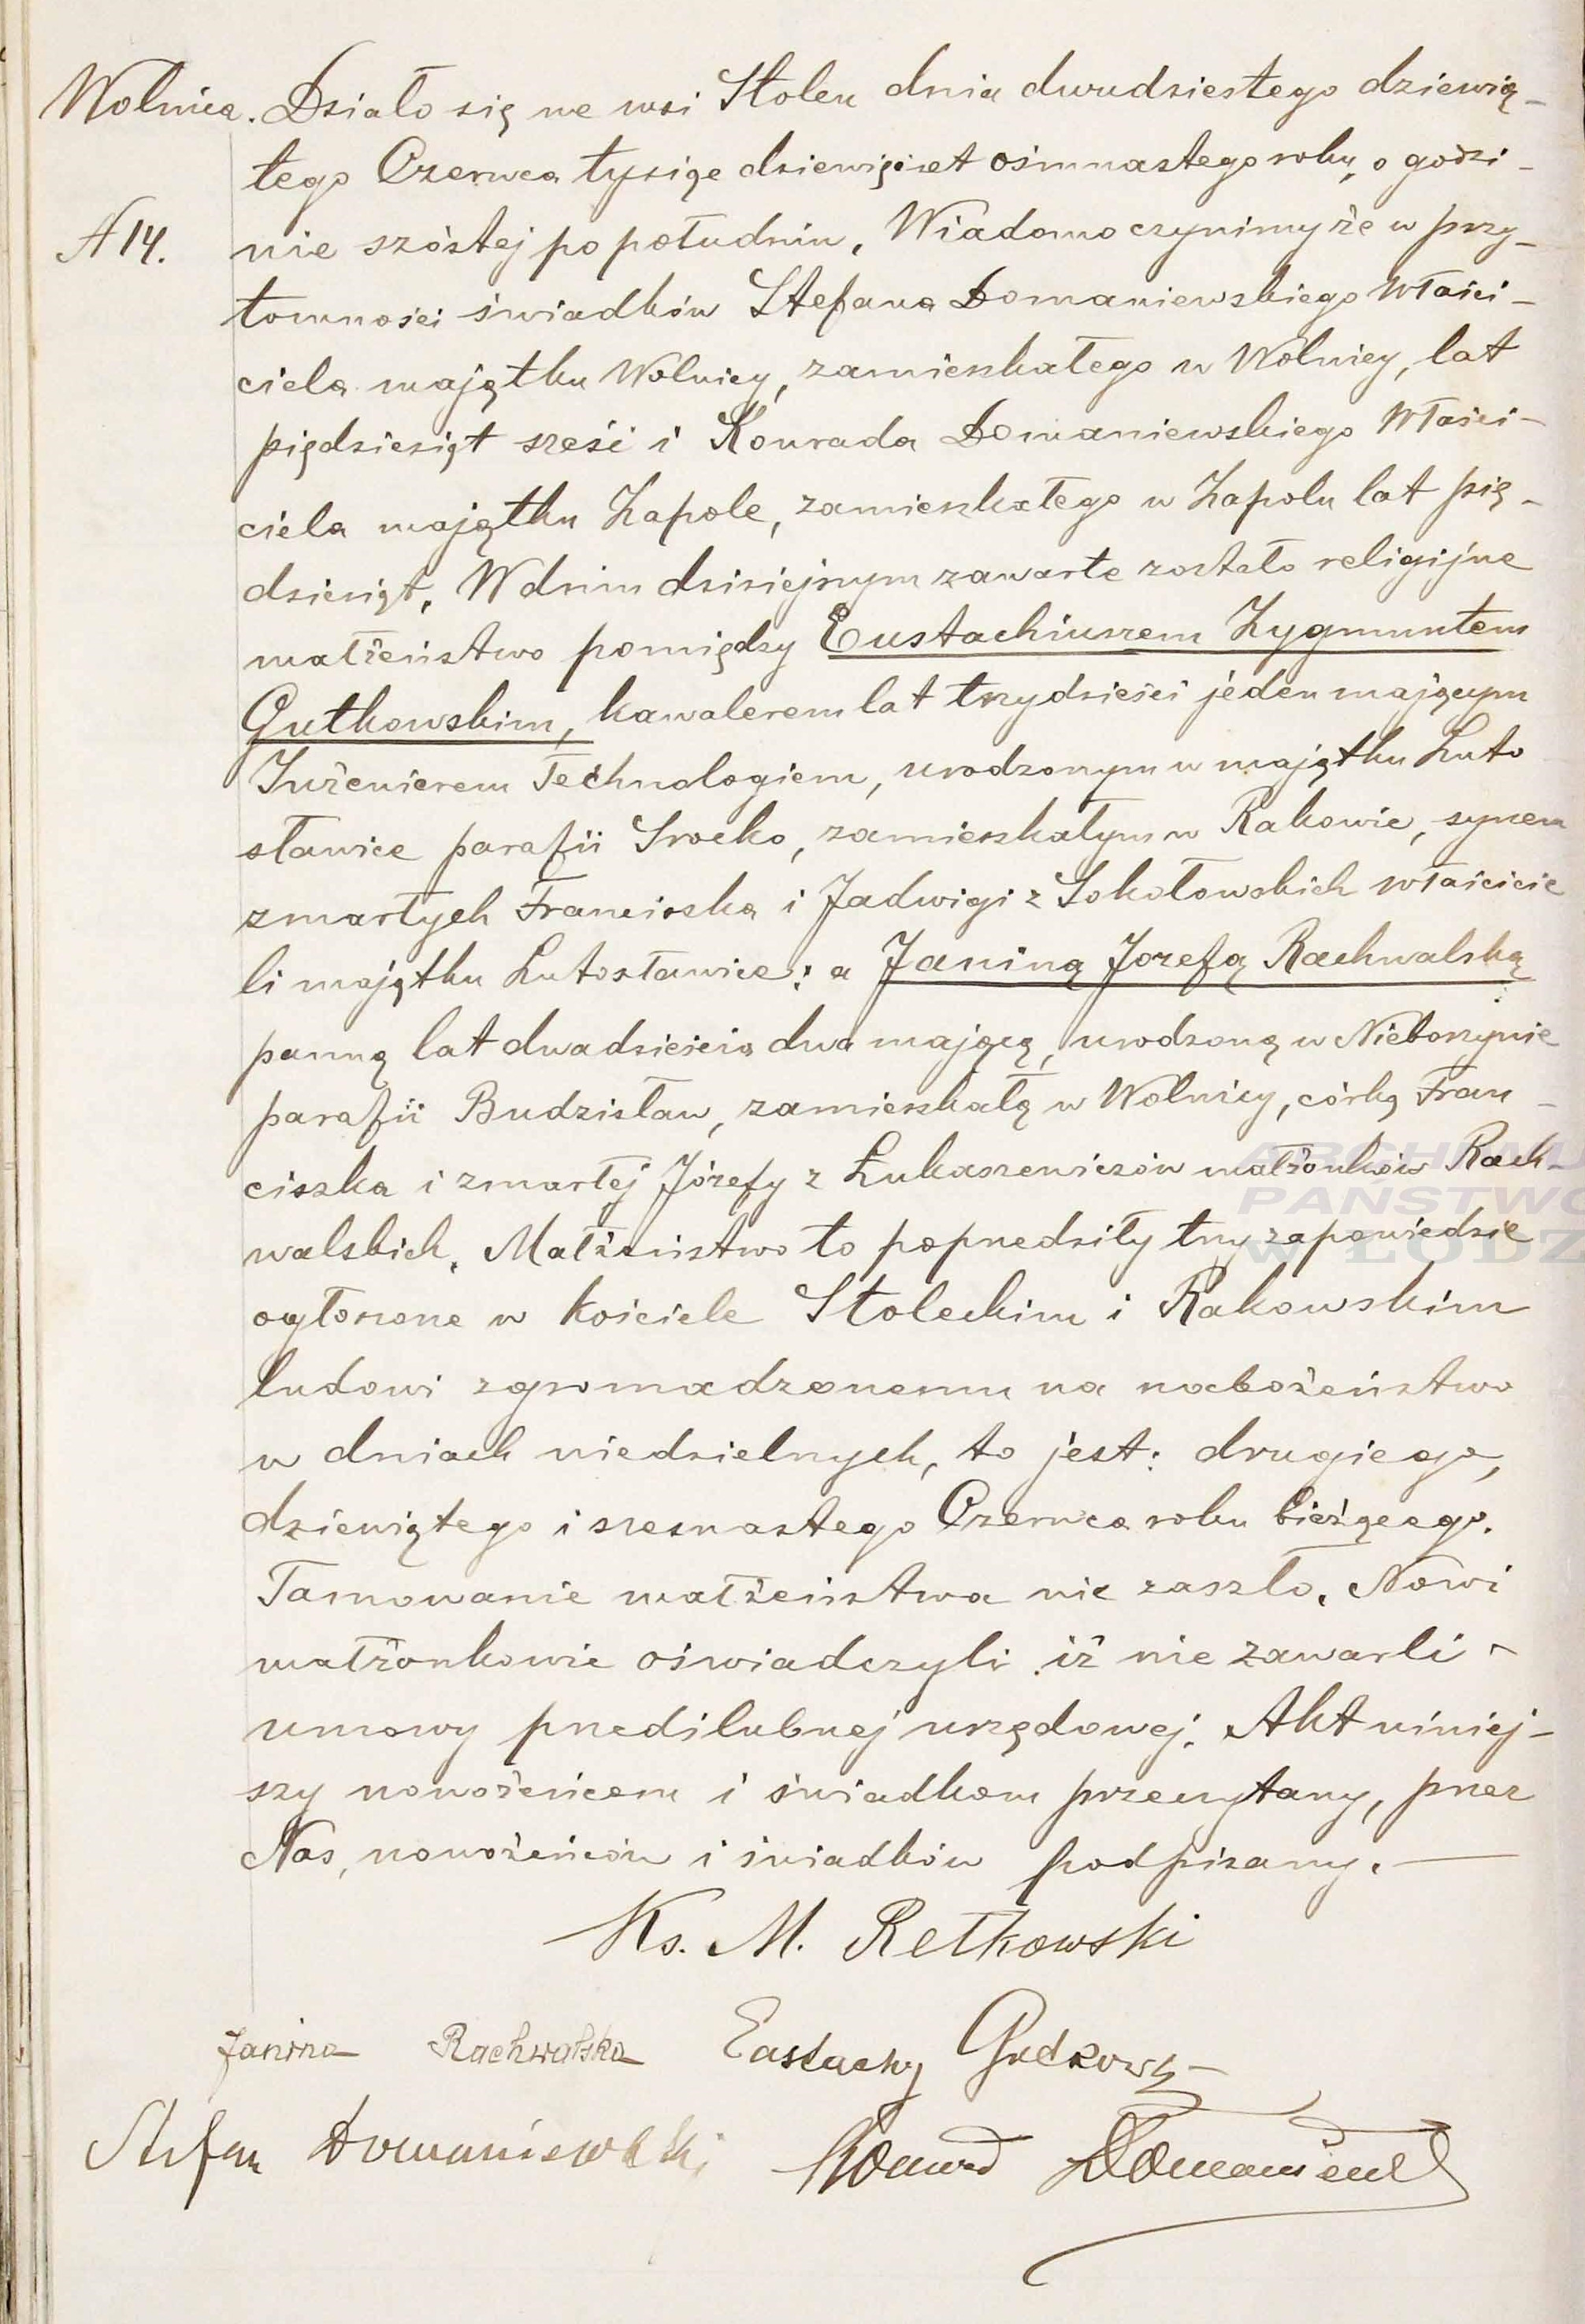 Wolnica. Działo się we wsi Stolcu dnia dwudziestego dziewią-
tego Czerwca tysiąc dziewięćset ośmnastego roku, o godzi-
N 14. nie szóstej po południu, Wiadomo czynimy że w przy-
tomności świadków Stefana Domaniewskiego Właści-
ciela majątku Wolnicy, zamieszkałego w Wolnicy, lat
piędziesiąt sześć i Konrada Domaniewskiego Właści-
ciela majątku Zapole, zamieszkałego w Zapolu lat pię-
dziesiąt. W dniu dzisiejszym zawarte zostało religijne
małżeństwo pomiędzy Eustachiuszem Zygmuntem
Gutkowskim, kawalerem lat trzydzieści jeden mającym
Inżenierem Technologiem, urodzonym w majątku Luto
sławice parafii Srocko, zamieszkałym w Rakowie, synem
zmarłych Franciszka i Jadwigi z Sokołowskich właścicie
li majątku Lutosławice; a Janiną Jozefą Rachwalską
panną lat dwadzieścia dwa mającą, urodzoną w Nieborzynie
parafii Budzisław, zamieszkałą w Wolnicy, córką Fran-
ciszka i zmarłej Józefy z Łukaszewiczów małżonków Rach-
walskich. Małżeństwo to poprzedziły trzy zapowiedzie
ogłoszone w kościele Stoleckim i Rakowskim
ludowi zgromadzonemu na nabożeństwo
w dniach niedzielnych, to jest: drugiego,
dziewiątego i szesnastego Czerwca roku bieżącego.
Tamowanie małżeństwa nie zaszło. Nowi
małżonkowie oświadczyli iż nie zawarli
umowy przedślubnej urzędowej. Akt niniej-
szy nowożeńcom i świadkom przeczytany, przez
Nas, nowożeńców i świadków podpisany.
Ks. M. Retkowski
Janina Rachwalska Eustachy Gutkowski
Stefan Domaniewski Konrad Domaniewski
ARCHIWUM
PAŃSTWO
W ŁODZ